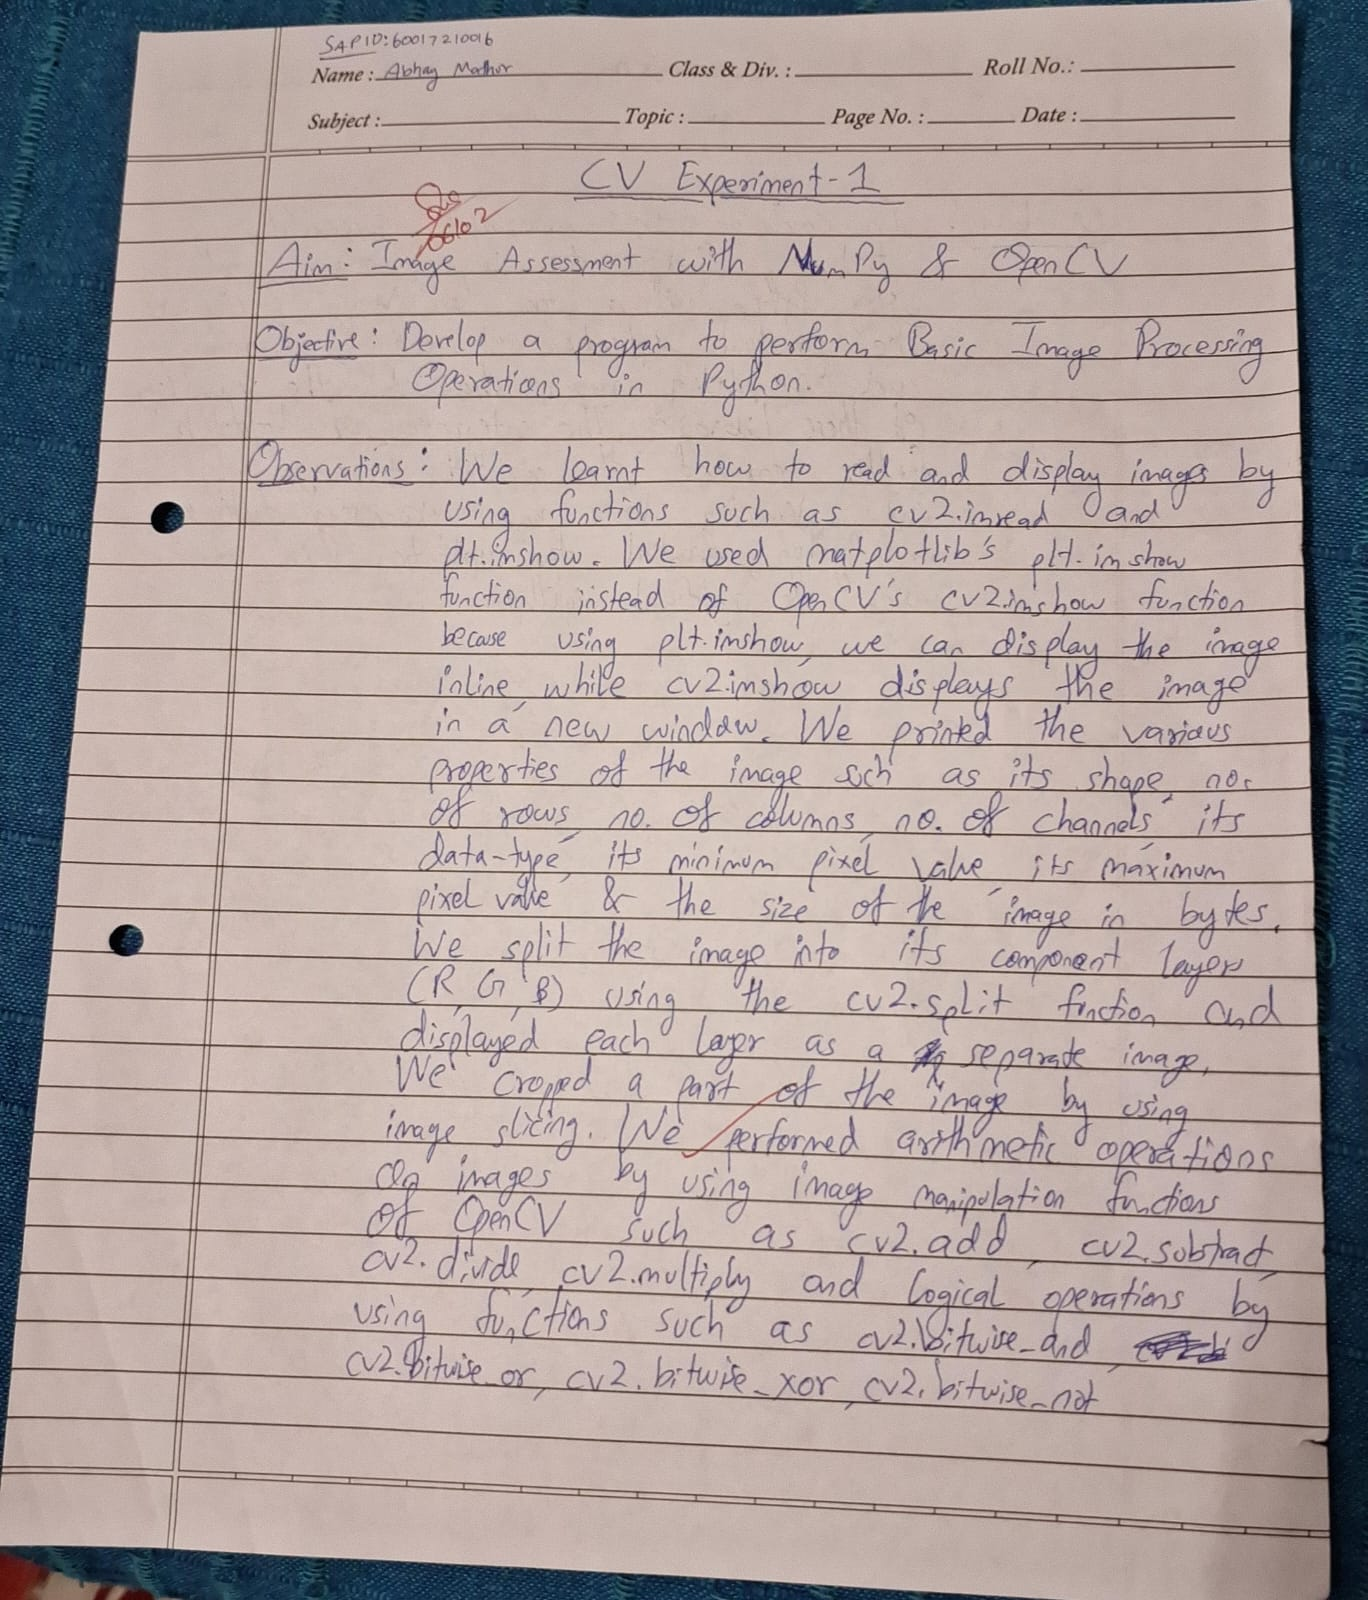 SAP ID: 60017210016
Name : Abhay Mathur Class & Div. : Roll No.:
Subject : Topic : Page No. : Date :
CV Experiment-1
06/02
Aim: Image Assessment with NumPy & OpenCV
Objective: Develop a program to perform Basic Image Processing
Operations in Python.
Observations: We learnt how to read and display images by
using functions such as cv2.imread and
plt.imshow. We used matplotlib's plt.imshow
function instead of OpenCV's cv2.imshow function
because using plt.imshow, we can display the image
inline, while cv2.imshow displays the image
in a new window. We printed the various
properties of the image such as its shape, no.
of rows, no. of columns, no. of channels, its
data-type, its minimum pixel value, its maximum
pixel value & the size of the image in bytes.
We split the image into its component layers
(R, G, B) using the cv2.split function and
displayed each layer as a separate image.
We cropped a part of the image by using
image slicing. We performed arithmetic operations
on images by using image manipulation functions
of OpenCV such as cv2.add, cv2.subtract,
cv2.divide, cv2.multiply and logical operations by
using functions such as cv2.bitwise_and,
cv2.bitwise_or, cv2.bitwise_xor, cv2.bitwise_not